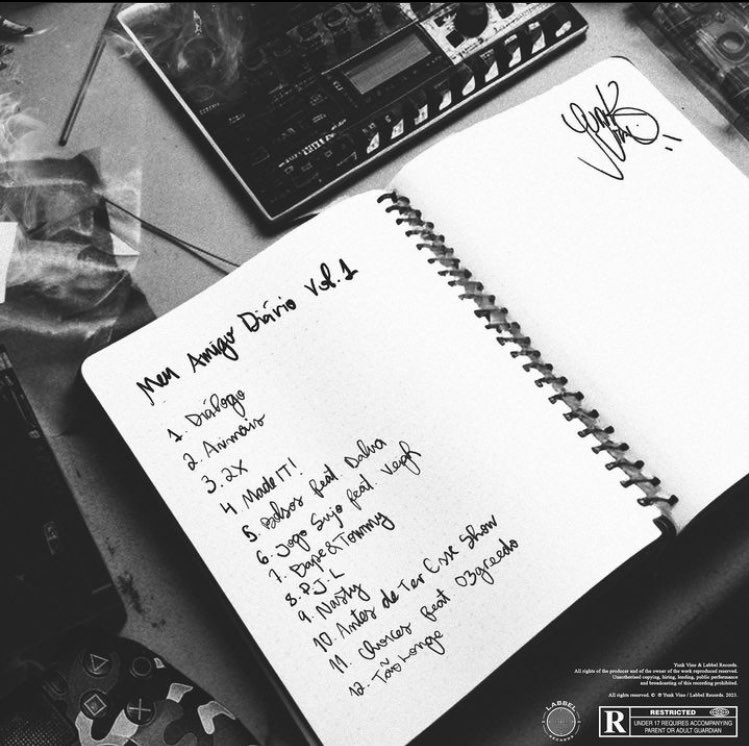 Yunk Vino
Meu Amigo Diário Vol.1
1. Diálogo
2. Animais
3. 2X
4 Made IT!
5. Bolsos feat Dalua
6. Jogo Sujo feat. Veigh
7. Bape & Tommy
8. P.J.L
9. Nasty
10. Antes de Ter Esse Show
11. Choices feat 03greedo
12. Tão Longe
Yunk Vino & Labbel Records.
All rights of the producer and of the owner of the work reproduced reserved.
Unauthorised copying, hiring, lending, public performance
and broadcasting of this recording prohibited.
All rights reserved. © ℗ Yunk Vino / Labbel Records. 2023.
LABBEL
RECORDS
R
RESTRICTED
UNDER 17 REQUIRES ACCOMPANYING
PARENT OR ADULT GUARDIAN